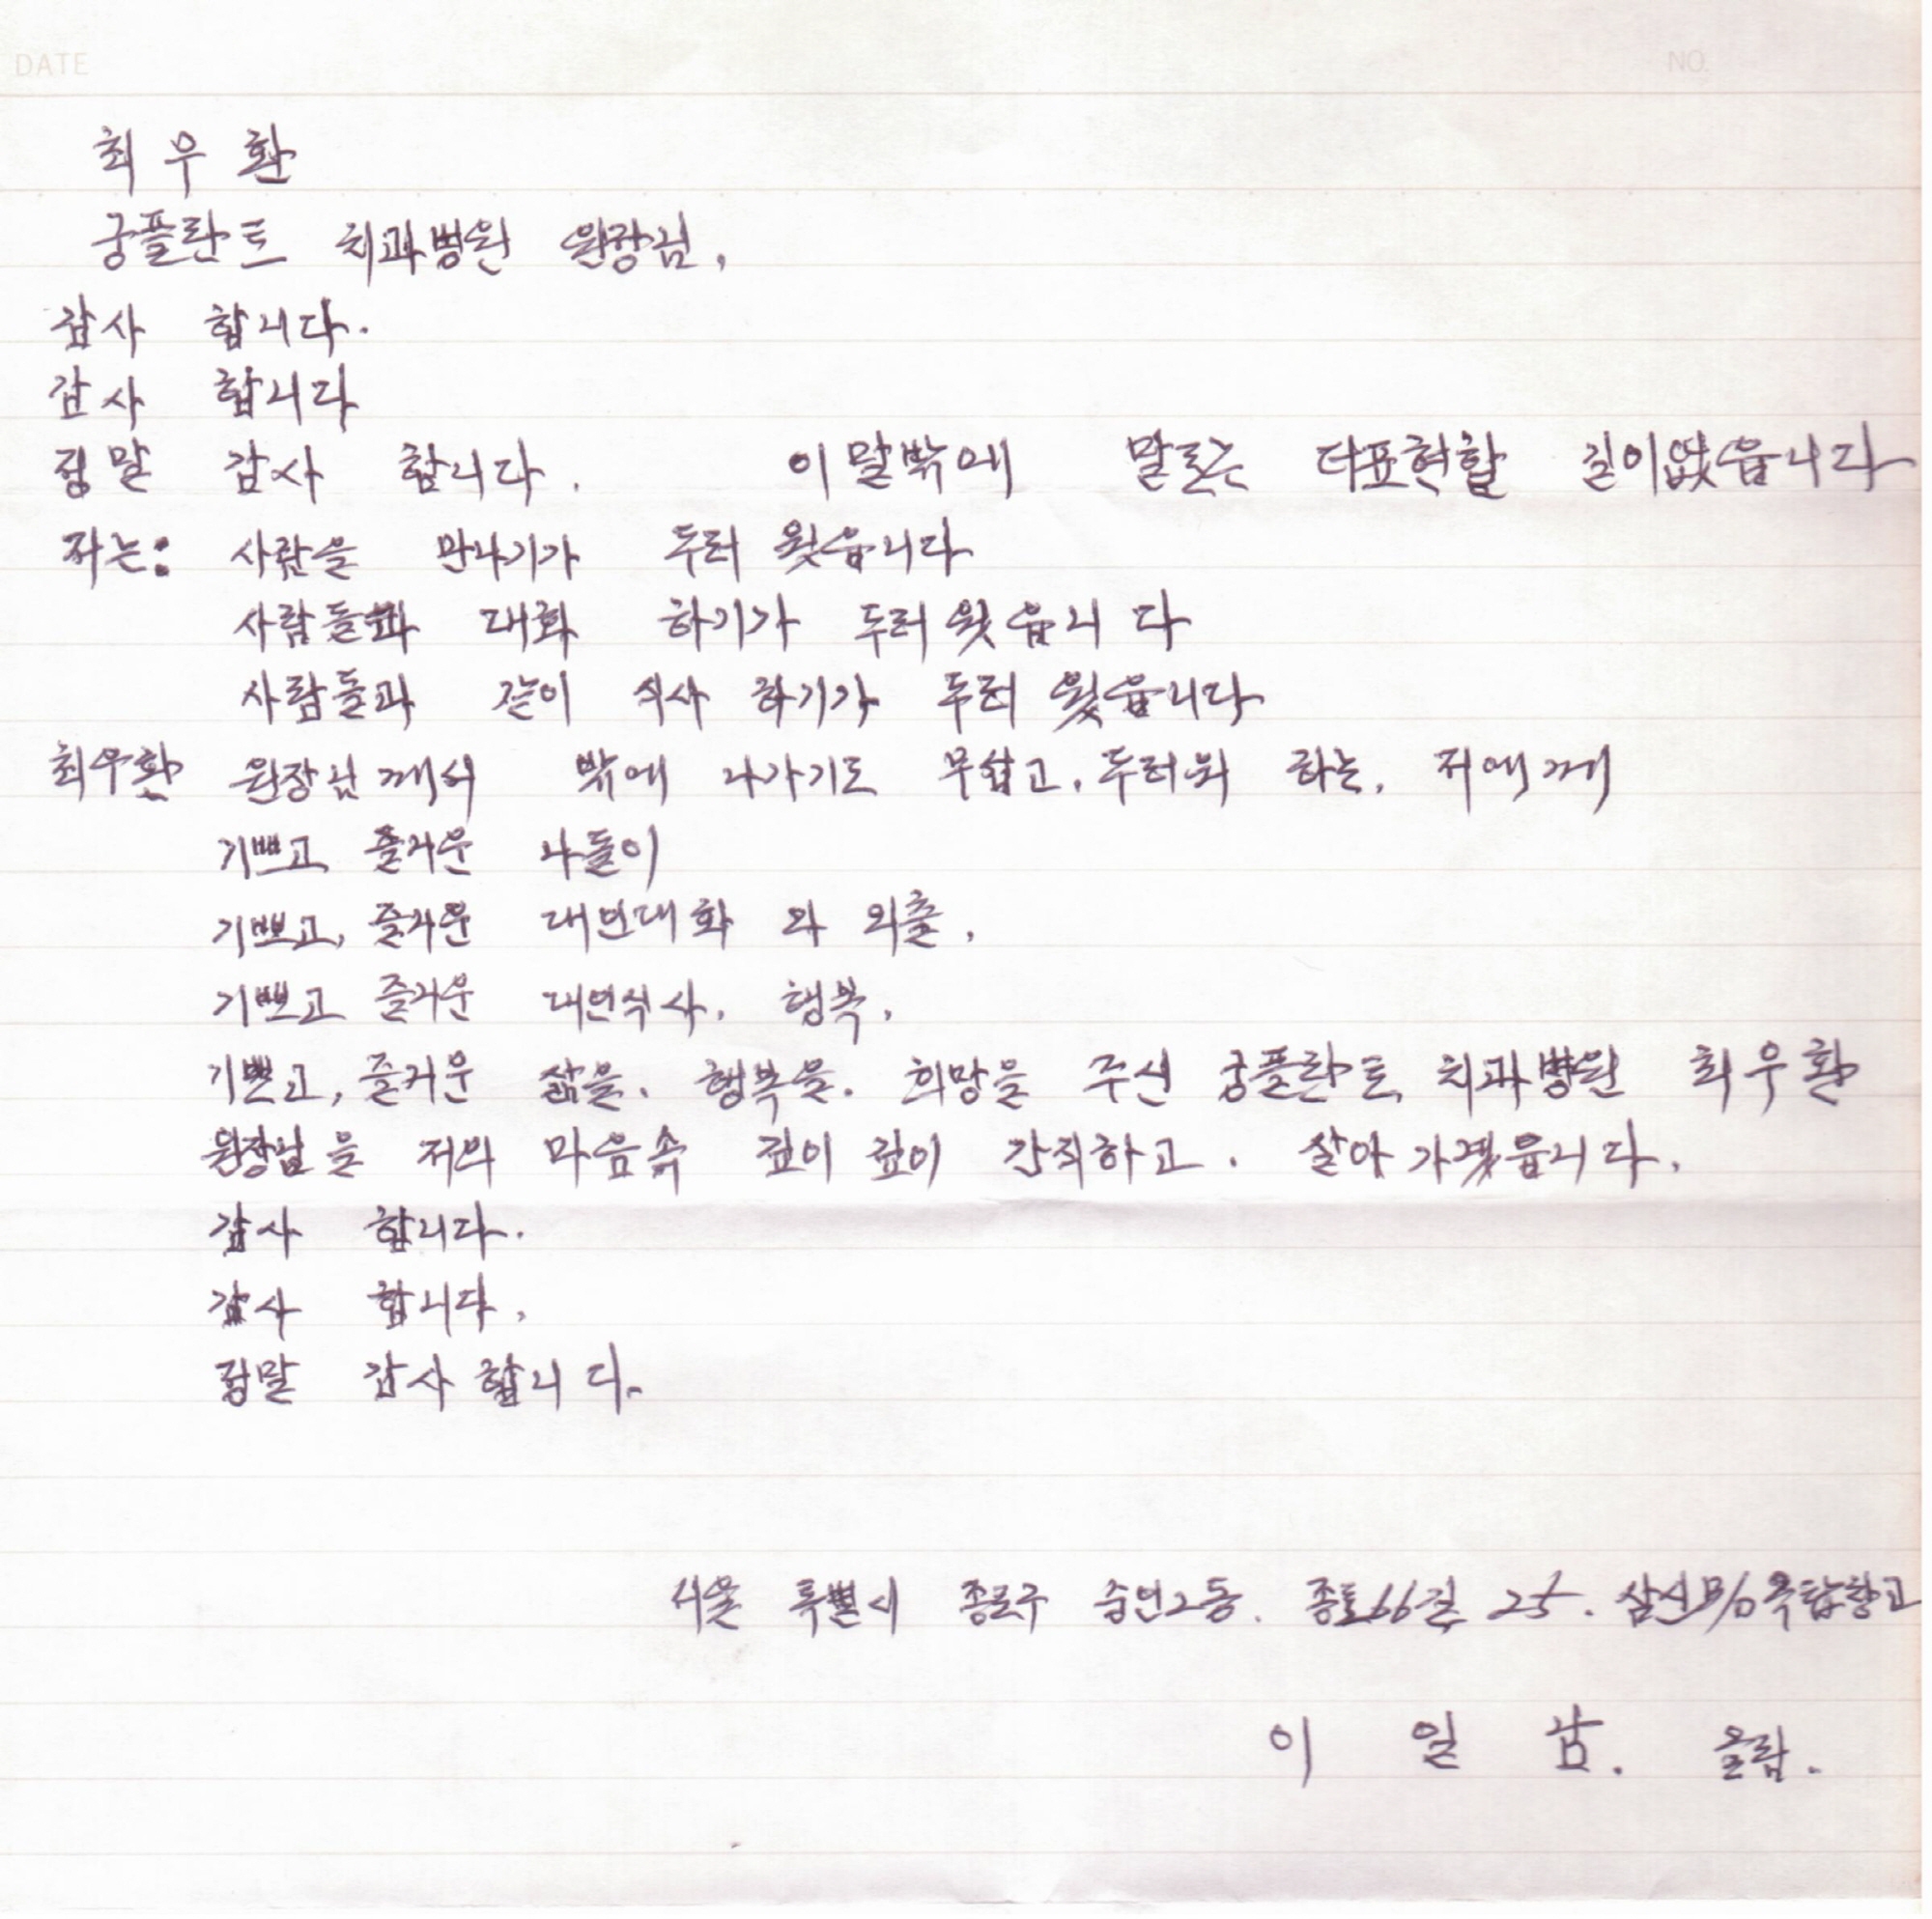 DATE NO.
최우환
궁플란트 치과병원 원장님,
감사 합니다.
감사 합니다
정말 감사 합니다. 이말밖에 말로는 다표현할 길이없읍니다
저는: 사람을 만나기가 두려웠읍니다
사람들과 대화 하기가 두려웠읍니다
사람들과 같이 식사 하기가 두려웠읍니다
최우환 원장님께서 밖에 나가기도 무섭고, 두려워 하는, 저에게
기쁘고 즐거운 나들이
기쁘고, 즐거운 대인대화 와 외출,
기쁘고 즐거운 대인식사, 행복,
기쁘고, 즐거운 삶을. 행복을. 희망을 주신 궁플란트 치과병원 최우환
원장님을 저의 마음속 깊이 깊이 간직하고. 살아가겠읍니다.
감사 합니다.
감사 합니다.
정말 감사합니다.
서울 특별시 종로구 숭인2동. 종로66길 25. 삼선
이 일 남. 올림.